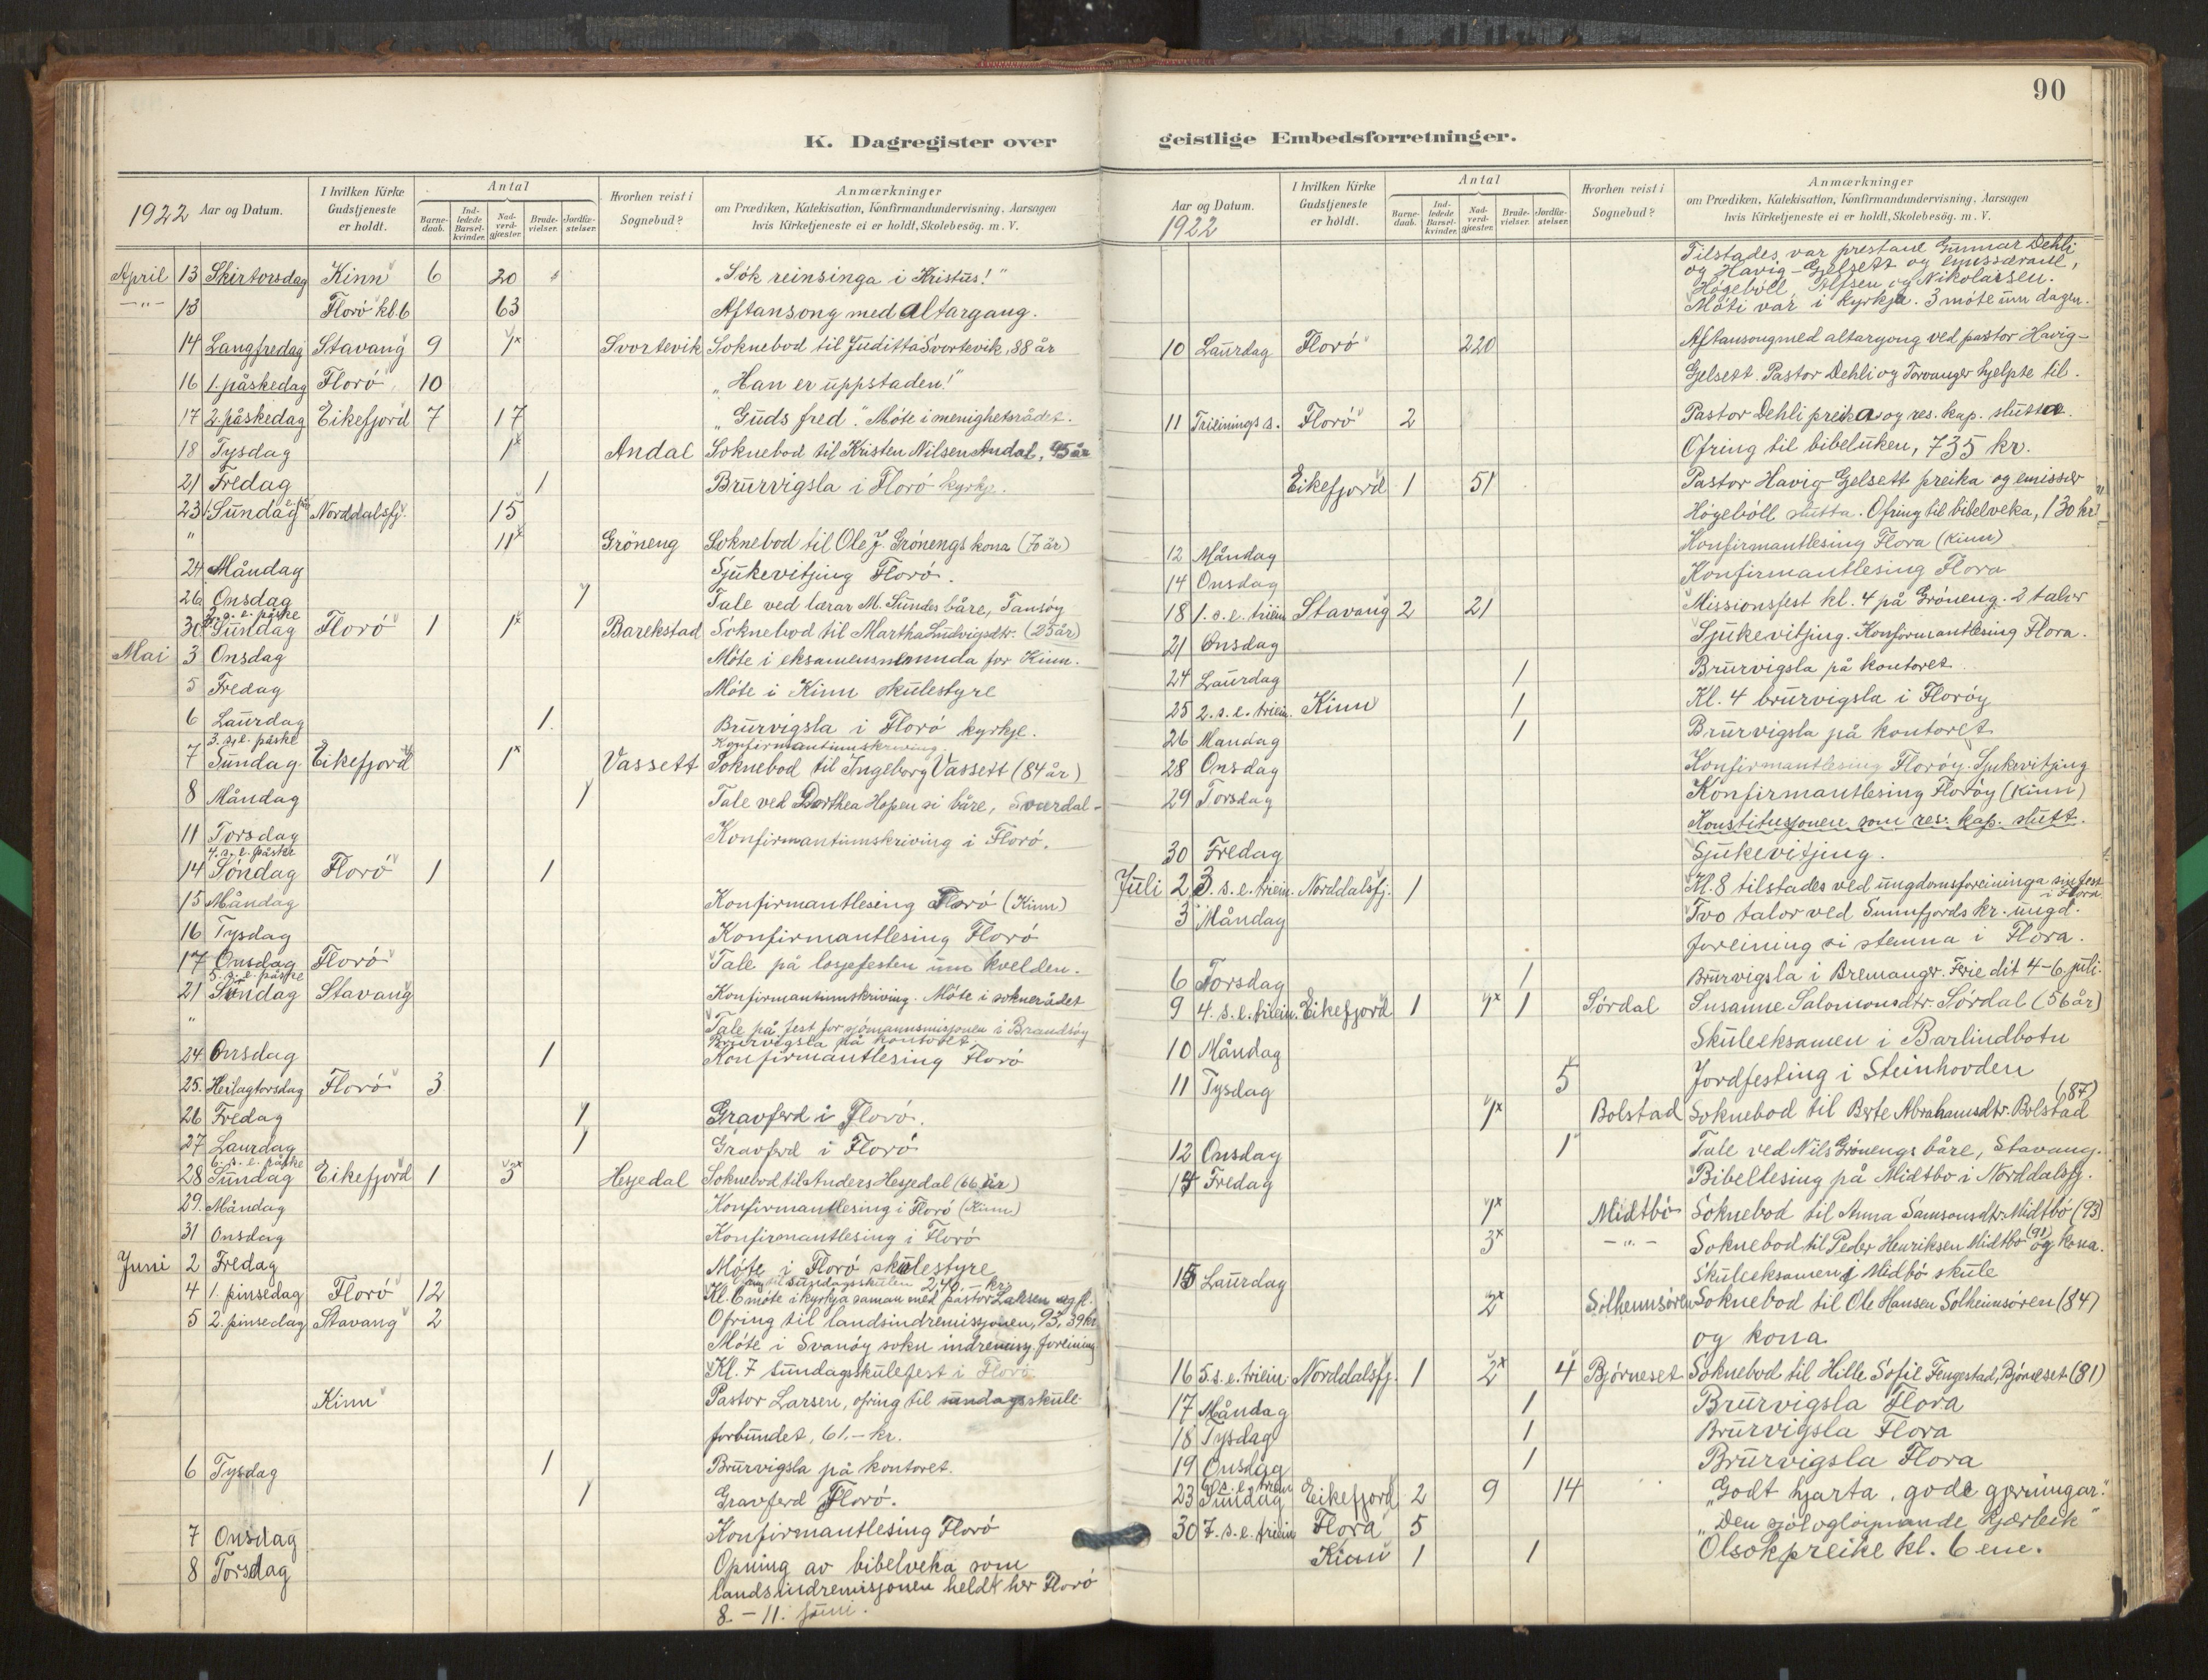 K. Dagregister over
1922 Aar og Datum.
I hvilken Kirke Gudstjeneste er holdt.
Antal
Barnedaab.
Indledede Barselkvinder.
Nadverdgjæster.
Brudevielser.
Jordfæstelser.
Hvorhen reist i Sognebud?
Anmærkninger
om Prædiken, Katekisation, Konfirmandundervisning. Aarsagen
hvis Kirketjeneste ei er holdt, Skolebesög. m. V.
April 13 Skirtorsdag Kinn 6 20 "Sök reinsinga i Kristus!"
-"- 13 Florö kl. 6 63 Aftansong med altargang.
14 Langfredag Stavang 9 1x Svortevik Soknebod til Juditta Svortevik, 88 år
16 1. påskedag Florö 10 "Han er uppstaden!"
17 2. påskedag Eikefjord 7 17 "Guds fred". Möte i menighetsrådet.
18 Tysdag 1x Andal Soknebod til Kristen Nilsen Andal, 95 år
21 Fredag 1 Brurvigsla i Florö kyrkje.
23 1. Sundag Norddalsfj. 15
" 11x Gröneng Soknebod til Ole J. Grönengs kona (70 år)
24 Måndag Sjukevitjing Florö.
26 Onsdag 1 Tale ved lærar M. Sundes båre, Tansöy
2. s. e. påske
30 Sundag Florö 1 1x Barekstad Soknebod til Martha Ludvigsdtr. (25 år)
Mai 3 Onsdag Möte i eksamensnemnda for Kinn.
5 Fredag Möte i Kinn skulestyre
6 Laurdag 1. Brurvigsla i Florö kyrkje.
3. s. e. påske Konfirmantumskriving.
7 Sundag Eikefjord 1x Vassett Soknebod til Ingeborg Vassett (84 år)
8 Måndag 1 Tale ved Dorthea Hopen si båre, Svardal-
11 Torsdag Konfirmantumskriving i Florö.
4. s. e. påske
14 Söndag Florö 1 1
15 Måndag Konfirmantlesing Florö (Kinn)
16 Tysdag Konfirmantlesing Florö
17 Onsdag Florö Tale på losjefesten um kvelden.
5. s. e. påske
21 Sundag Stavang Konfirmantumskriving. Möte i soknerådet
" Tale på fest for sjömannsmisjonen i Brandsöy
Brurvigsla på kontoret.
24 Onsdag 1 Konfirmantlesing Florö
25. Heilagtorsdag Florö 3
26 Fredag 1 Gravferd i Florö.
27 Laurdag 1 Gravferd i Florö
6. s. e. påske
28 Sundag Eikefjord 1 3x Hesjedal Soknebod til Anders Hesjedal (66 år)
29. Måndag Konfirmantlesing i Florö (Kinn)
31 Onsdag Konfirmantlesing i Florö
Juni 2 Fredag Möte i Florö skulestyre
til sundagsskulen 240,- kr.
4 1. pinsedag Florö 12 Kl. 6 möte i kyrkja saman med pastor Larsen og fl.
5 2. pinsedag Stavang 2 Ofring til landsindremissjonen, 93,39 kr.
Möte i Svanöy sokn indremissj. foreining
Kl. 7 sundagsskulefest i Florö
Kinn Pastor Larsen, ofring til sundagsskule-
forbundet, 61.- kr.
6 Tysdag 1 Brurvigsla på kontoret.
1 Gravferd Florö.
7 Onsdag Konfirmantlesing Florö
8 Torsdag Opning av bibelveka som
landsindremisjonen heldt her Florö
8. - 11. juni.
90
geistlige Embedsforretninger.
Aar og Datum.
1922
I hvilken Kirke Gudstjeneste er holdt.
Antal
Barnedaab.
Indledede Barselkvinder.
Nadverdgjæster.
Brudevielser.
Jordfæstelser.
Hvorhen reist i Sognebud?
Anmærkninger
om Prædiken, Katekisation, Konfirmandundervisning. Aarsagen
hvis Kirketjeneste ei er holdt, Skolebesög. m. V.
Tilstades var prestane Gunnar Dehli
og Havig-Gjelsett og emissærane,
Högeböll, Alfsen og Nikolaisen.
Möti var i kyrkja. 3 möte um dagen.
10 Laurdag Florö 220 Aftansong med altargong ved pastor Havig-
Gjelsett. Pastor Dehli og Torvanger hjelpte til.
11 Treinings s. Florö 2 Pastor Dehli preika og res. kap. slutta.
Ofring til bibeluken, 735 kr.
Eikefjord 1 51 Pastor Havig-Gjelsett preika og emissær
Högeböll slutta. Ofring til bibelveka, 130 kr.
12 Måndag Konfirmantlesing Flora (Kinn)
14 Onsdag Konfirmantlesing Flora
18 1. s. e. triein. Stavang 2 21 Missionsfest kl. 4 på Gröneng. 2 talor
21 Onsdag Sjukevitjing. Konfirmantlesing Flora.
24 Laurdag 1 Brurvigsla på kontoret.
25 2. s. e. triein. Kinn 1 Kl. 4 brurvigsla i Floröy
26 Mandag 1 Brurvigsla på kontoret
28 Onsdag Konfirmantlesing Floröy. Sjukevitjing
29 Torsdag Konfirmantlesing Floröy (Kinn)
Konstitusjonen som res. kap. slutt.
30 Fredag Sjukevitjing.
Juli 2 3. s. e. triein. Norddalsfj. 1 Kl. 8 tilstades ved ungdomsforeininga sin fest
i Flora
3 Måndag Tvo talor ved Sunnfjords kr. ungd.
foreining si stemna i Flora.
6 Torsdag 1 Brurvigsla i Bremanger. Ferie dit 4-6 juli.
9 4. s. e. triein. Eikefjord 1 1x 1 Sördal Susanne Salomonsdtr. Sördal (56 år)
10 Måndag Skuleeksamen i Barlindbotn
11 Tysdag 5 Jordfesting i Steinhovden
(87)
1x Bolstad Soknebod til Berte Abrahamsdtr. Bolstad
12 Onsdag 1 Tale ved Nils Grönengs båre, Stavang.
14 Fredag Bibellesing på Midtbö i Norddalsfj.
1x Midtbö Soknebod til Anna Samsonsdtr. Midtbö (93)
3x -"- Soknebod til Peder Henriksen Midtbö (91) og kona.
15 Laurdag Skuleeksamen i Midbö skule
2x Solheimsören Soknebod til Ole Hansen Solheimsören (84)
og kona
16 5. s. e. triein. Norddalsfj. 1 2x 4 Björneset Soknebod til Hille Sofie Fengestad, Björneset (81)
17 Måndag 1 Brurvigsla Flora
18 Tysdag 1 Brurvigsla Flora
19 Onsdag 1 Brurvigsla Flora
6. s. e. triein
23 Sundag Eikefjord 2 9 14 "Godt hjarta, gode gjerningar."
30 7. s. e. triein Flora 5 "Den sjölvgløymande kjærleik"
Kinn 1 1 Olsokpreike kl. 6 em.